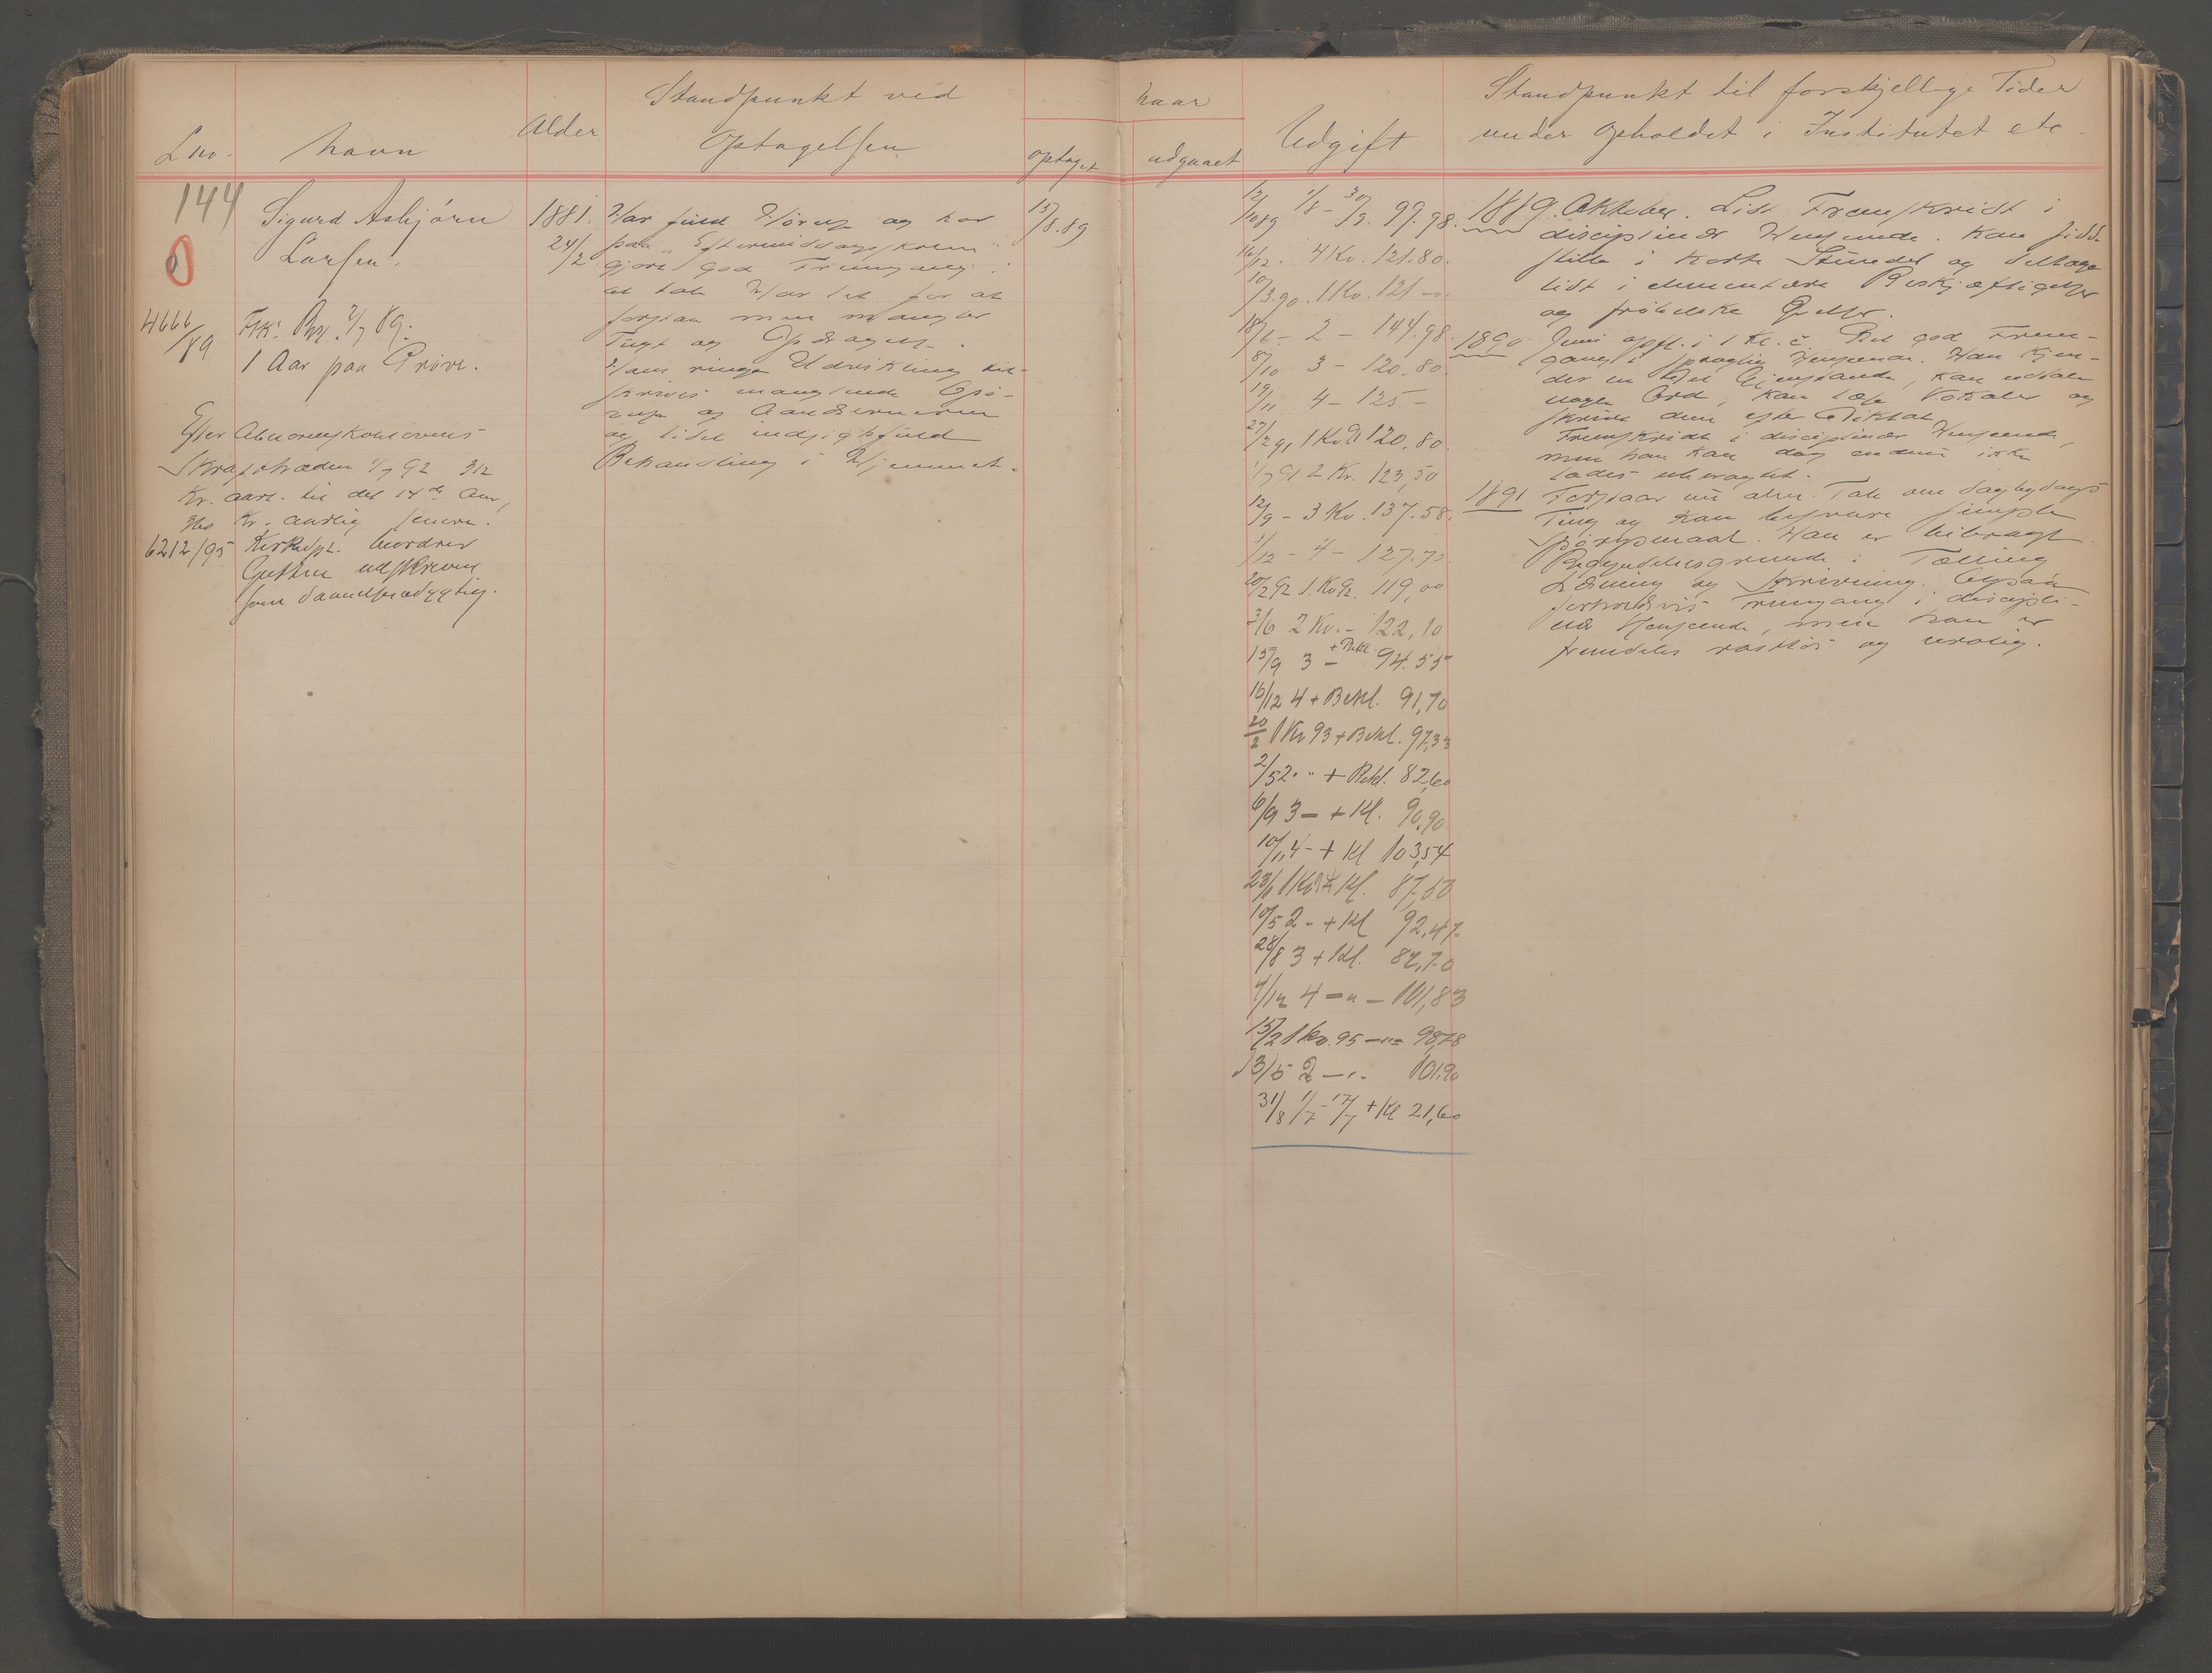 Lno.
Navn
Alder
Standpunkt ved
Optagelsen
naar
optaget
udgaaet
Udgift
Standpunkt til forskjellige Tider
under Opholdet i Institutet etc.
144
0
Sigurd Asbjörn
Larsen.
4666/89
1 Aar paa Prøve.
Kr. aarl. til det 14de Aar,
Kr. aarlig senere.
6212/95
Gutten udskreven
som dannelsesdygtig.
1881.
24/2
Har fuld Hørsel og har
paa "Eftermiddagsskolen"
gjort god Fremgang i
at tale. Har let for at
forstaa men mangler
Tugt og Opdragelse.
Hans ringe Udvikling til-
skrives manglende
og Aandsevner
og lidet indsigtsfuld
Behandling i Hjemmet.
15/8.89
12/10 89 1/8 - 30/9. 99.98.
16/12. 4 Kv. 121.80.
10/3.90. 1 Kv. 121 -
18/6 - 2 - 144.98.
8/10 3 - 120.80.
19/11 4 - 125 -
27/2 91 1 Kv 91 120.80.
1/7 91 2 Kv. 123,50
12/9 - 3 Kv. 137.58.
1/12 - 4 - 127.70
20/2 92 1. Kv 92. 119,00
3/6 2 Kv. - 122,10
15/9 3 - + Bekl. 94.55
16/12 4 + Bekl. 91,70
20/2 1 Kv 93 + Bekl. 97,33
2/5 2 " + Bekl. 82,60
6/9 3 - + Kl. 90,90
10/11 4 - + Kl 103,54
10/5 2 - + Kl 92,47
28/8 3 + Kl. 82,70
4 - " - 101,83
15/2 1 kv. 95 - " - 98,78
13/5 2 - " - 101,90
31/8 1/7 - 17/7 + Kl 21,60
1889. Oktober. Lidt Fremskridt i
disciplinær Henseende. Kan sidde
stille i korte Stunder og deltage
lidt i elementære Beskjæftigelser
og frøbelske Øvelser.
1890 Juni opfl. i 1 Kl. c. Ret god Frem-
gang i sproglig Henseende. Han kjen-
der en Del Gjenstande, kan udtale
nogle Ord, kan læse Vokaler og
skrive dem efter Diktat.
Fremskridt i disciplinær Henseende,
men han kan dog endnu ikke
lades ubevogtet.
1891 Forstaar nu alm. Tale om dagligdags
Ting og kan besvare simple
Spørgsmaal. Han er bibragt
Begyndelsesgrunde i Tælling
Læsning og Skrivning. Ogsaa
forholdsvis Fremgang i discipli-
nær Henseende, men han er
fremdeles rastløs og urolig.